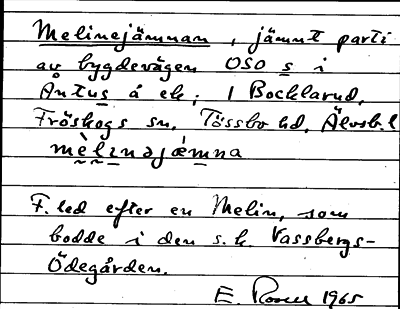 Melinejämnan, jämnt parti
av bygdevägen OSO s i
Åntus å ek; I Bocklarud,
Fröskogs sn, Tössbo hd, Älvsb. l
mèlınəjǽmna
F. led efter en Melin, som
bodde i den s.k. Vassbergs-
Ödegården.
E. 1965